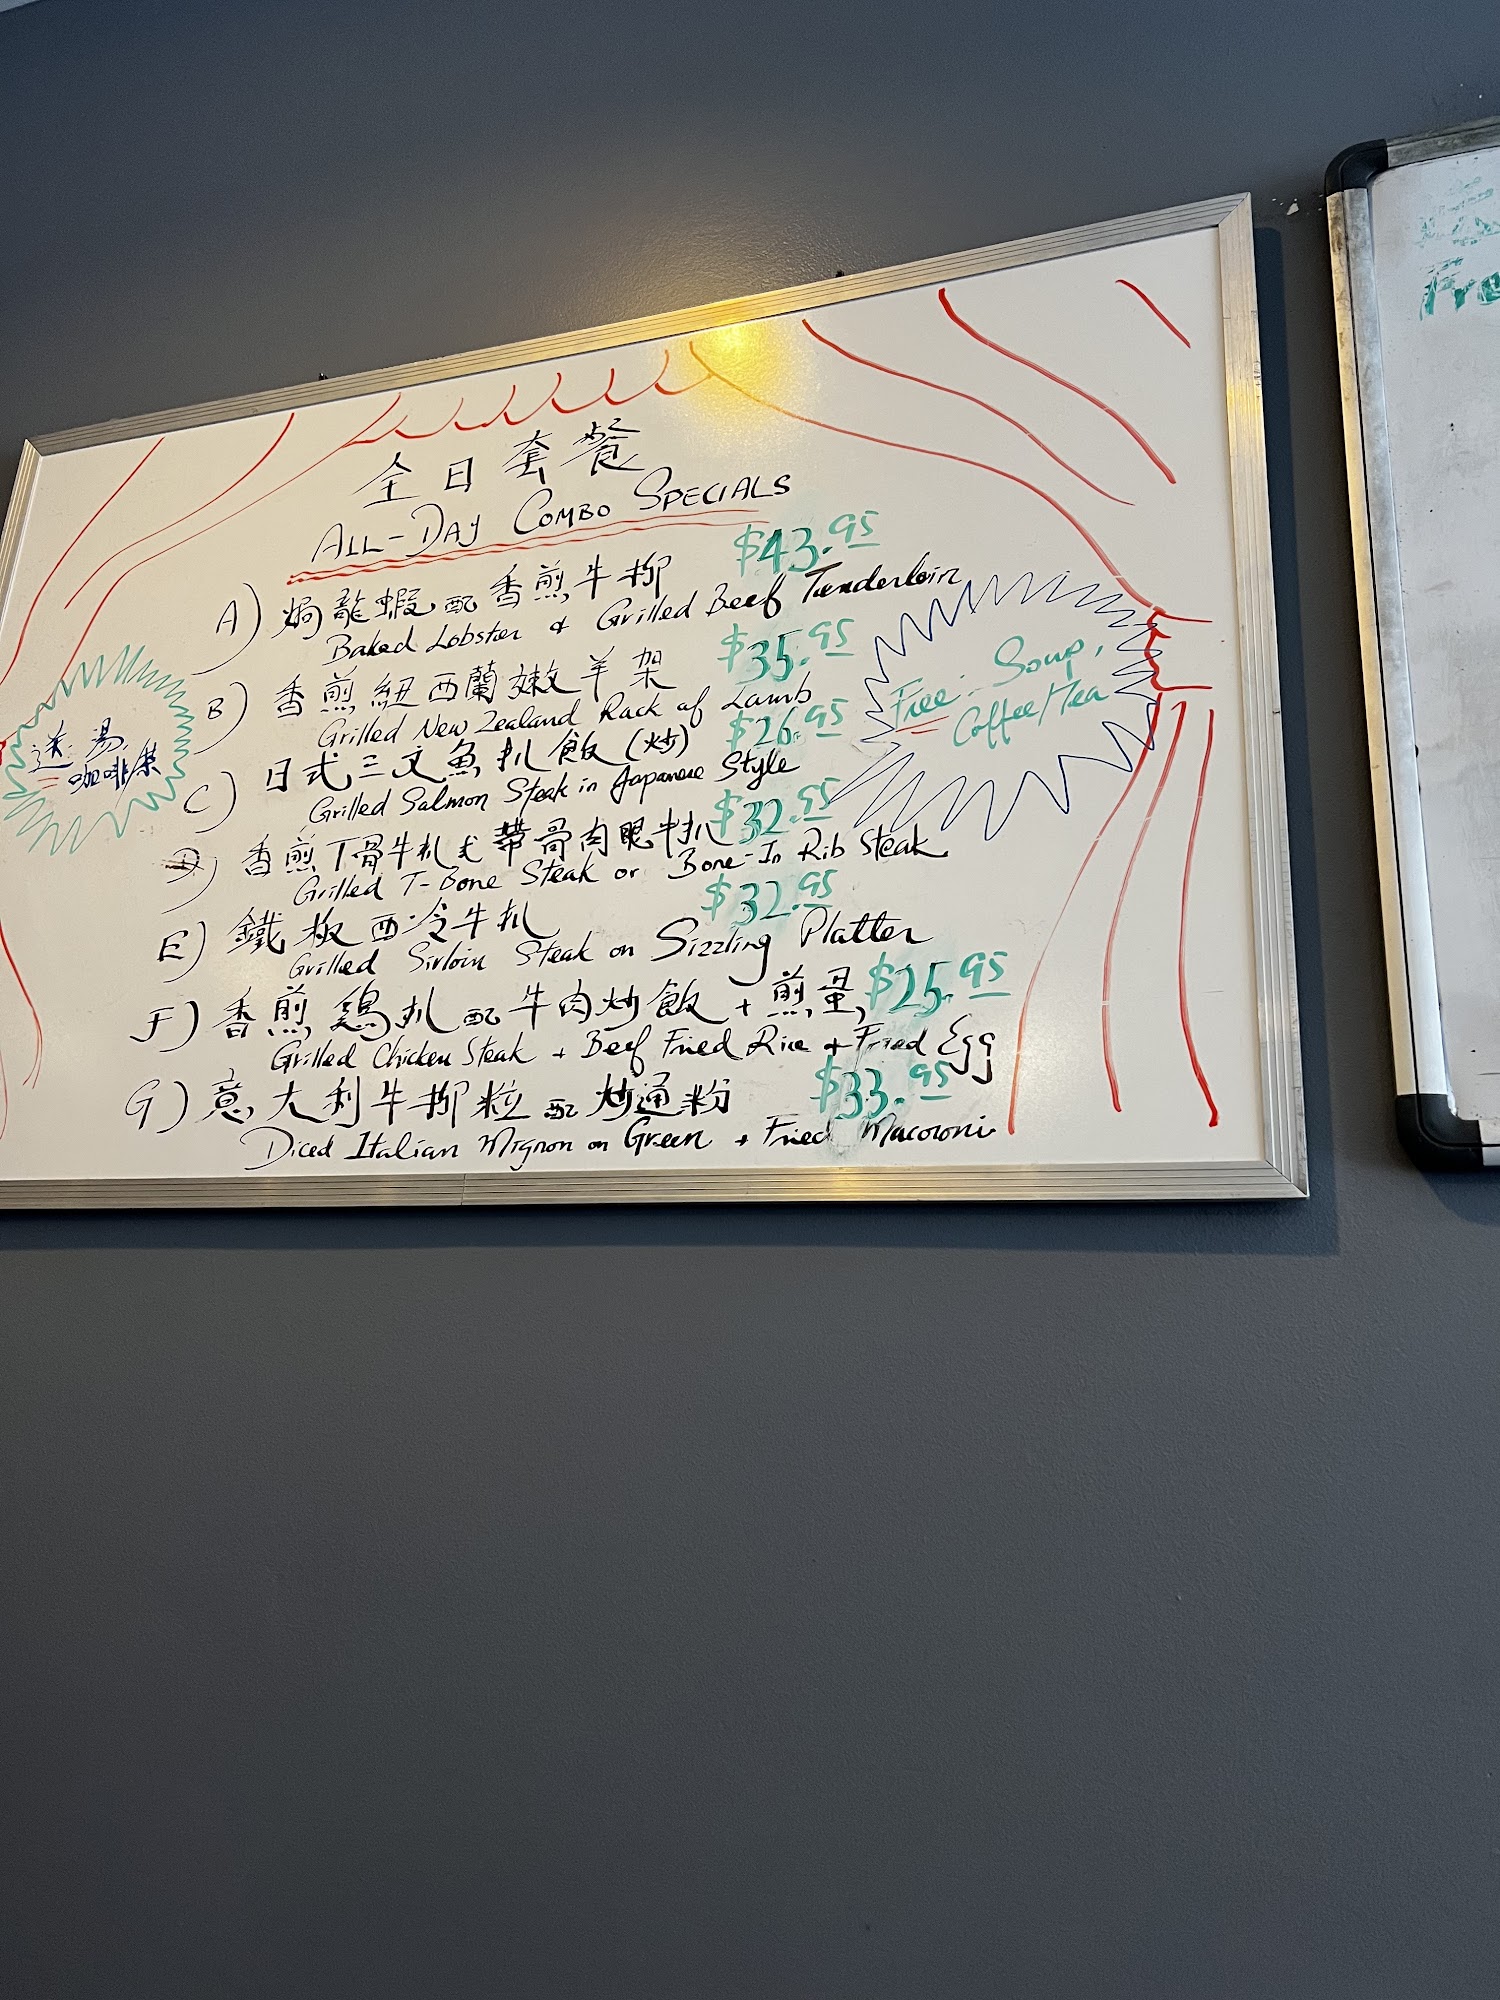 全日套餐
ALL-DAY COMBO SPECIALS
A) 焗龍蝦配香煎牛柳 $43.95
Baked Lobster & Grilled Beef Tenderloin
B) 香煎紐西蘭嫩羊架 $35.95
Grilled New Zealand Rack of Lamb
C) 日式三文魚扒飯(炒) $26.95
Grilled Salmon Steak in Japanese Style
D) 香煎T骨牛扒或帶骨肉眼牛扒 $32.95
Grilled T-Bone Steak or Bone-In Rib Steak
E) 鐵板西冷牛扒 $32.95
Grilled Sirloin Steak on Sizzling Platter
F) 香煎鷄扒配牛肉炒飯+煎蛋 $25.95
Grilled Chicken Steak + Beef Fried Rice + Fried Egg
G) 意大利牛柳粒配炒通粉 $33.95
Diced Italian Mignon on Green + Fried Macoroni
送:湯,
咖啡/茶
Free: Soup,
Coffee/Tea
Fre